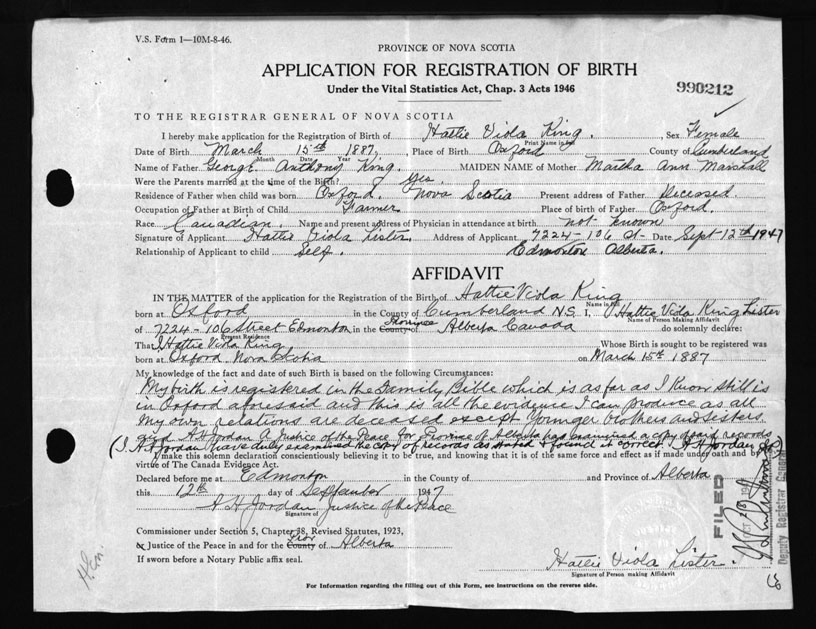 V.S. Form 1—10M-8-46.
PROVINCE OF NOVA SCOTIA
APPLICATION FOR REGISTRATION OF BIRTH
Under the Vital Statistics Act, Chap. 3 Acts 1946
990212
TO THE REGISTRAR GENERAL OF NOVA SCOTIA
I hereby make application for the Registration of Birth of Hattie Viola King. , Sex Female
Print Name in full
Date of Birth March 15th 1887, Place of Birth Oxford County of Cumberland
Month Date Year
Name of Father George Anthony King. MAIDEN NAME of Mother Martha Ann Marshall
Were the Parents married at the time of the Birth? Yes.
Residence of Father when child was born Oxford. Nova Scotia Present address of Father Deceased.
Occupation of Father at Birth of Child Farmer Place of birth of Father Oxford.
Race Canadian. Name and present address of Physician in attendance at birth not known
Signature of Applicant Hattie Viola Lister. Address of Applicant 7224-106 St- Date Sept 12th 1947
Relationship of Applicant to child Self. Edmonton Alberta.
AFFIDAVIT
IN THE MATTER of the application for the Registration of the Birth of Hattie Viola King
Name in full
born at Oxford in the County of Cumberland N.S. I, Hattie Viola King Lister
Name of Person Making Affidavit
of 7224-106 Street Edmonton in the County of Province Alberta Canada do solemnly declare:
Present Residence
That I Hattie Viola King Whose Birth is sought to be registered was
born at Oxford, Nova Scotia on March 15th 1887
My knowledge of the fact and date of such Birth is based on the following Circumstances:
My birth is registered in the Family Bible which is as far as I know still is
in Oxford aforesaid and this is all the evidence I can produce as all
my own relations are deceased except younger brothers and sisters
and A H Jordan A Justice of the Peace for Province of Alberta has examined a copy of said records
(I. A H Jordan have duly examined the copy of records as & found it correct A H Jordan JP)
make this solemn declaration conscientiously believing it to be true, and knowing that it is of the same force and effect as if made under oath and by
virtue of The Canada Evidence Act.
Declared before me at Edmonton in the County of and Province of Alberta
this 12th day of September 1947
A H Jordan Justice of the Peace
Signature of
Commissioner under Section 5, Chapter 38, Revised Statutes, 1923,
or Justice of the Peace in and for the County Prov of Alberta
If sworn before a Notary Public affix seal.
Hattie Viola Lister.
Signature of Person making Affidavit
FILED
Deputy Registrar General
For Information regarding the filling out of this Form, see instructions on the reverse side.